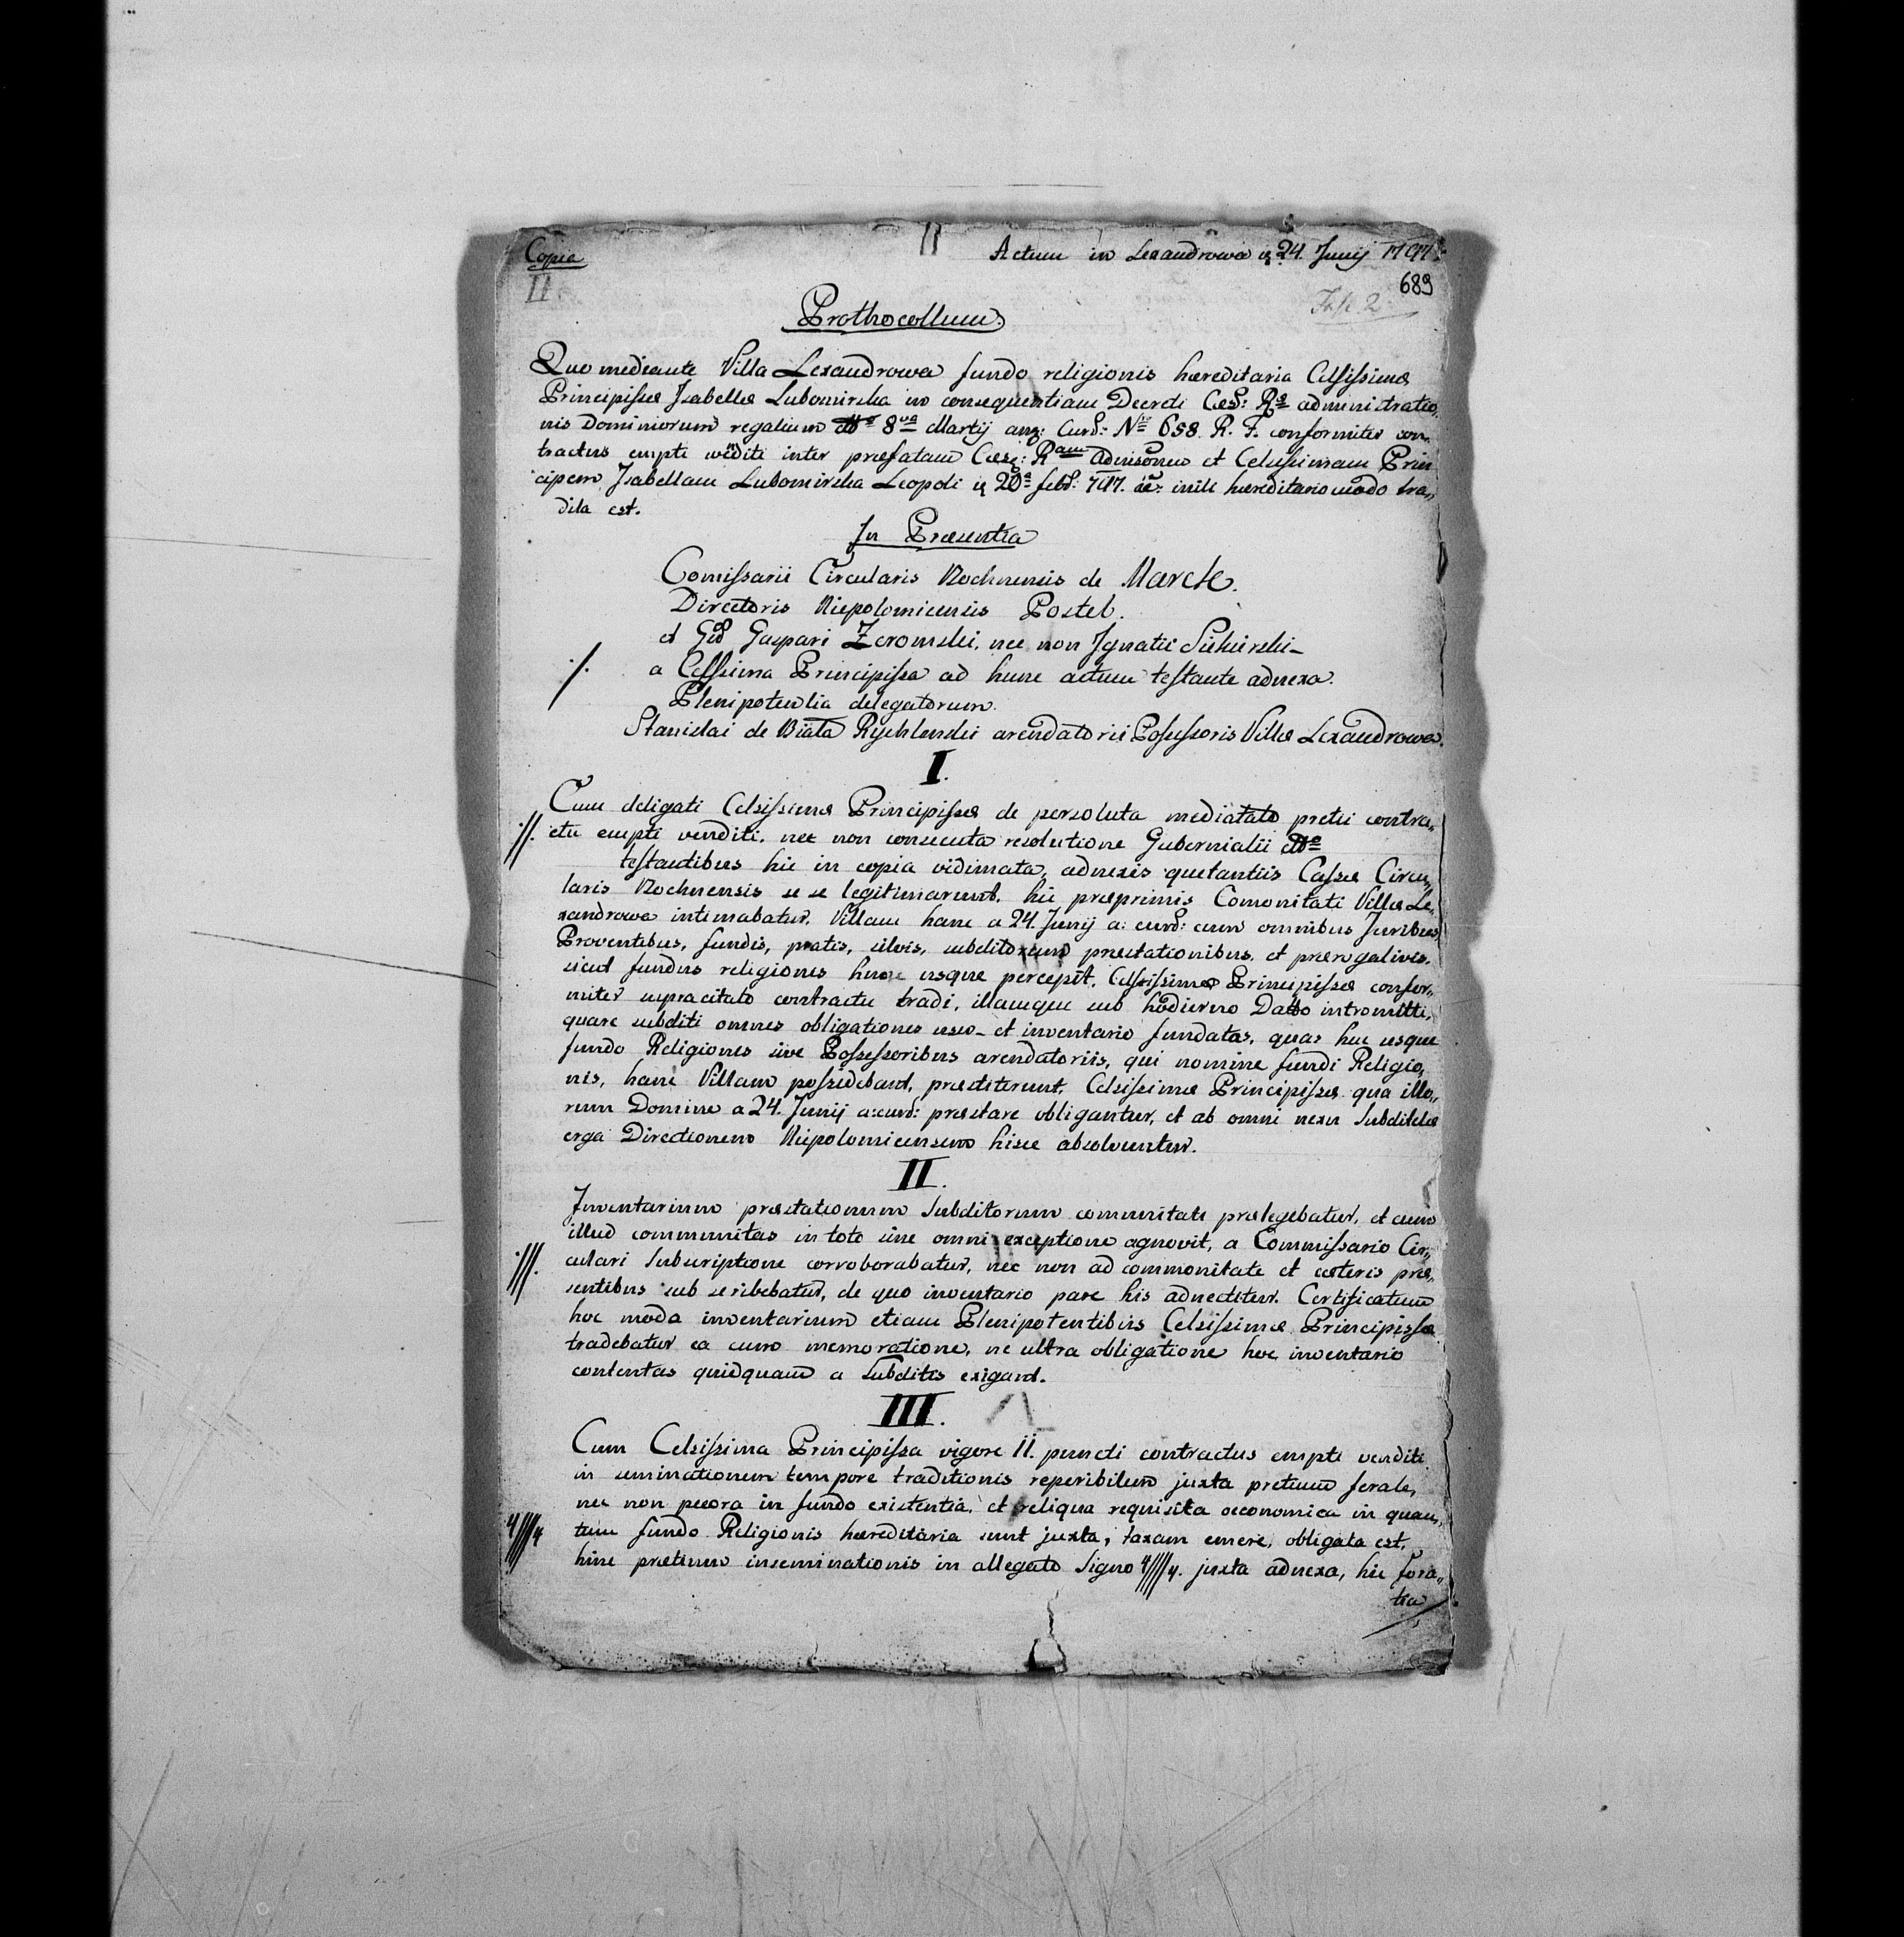 Copia
Actum in Lexandrowa 24. Junij
II.
689
Prothocollum
Quo mediante Villa Lexandrowa fundo religionis hæreditaria Celsissimæ
Principissæ Isabellæ Lubomirska in consequentiam Decreti Cæs: Ræ administratio„
nis Dominiorum regalium 8va Martij Curr: No 658 R. F. conformiter con„
tractus empti venditi inter præfatam Ram et Celsissimam Prin
cipem Isabellam Lubomirska Leopoli 20a febr: inili hæreditario modo tra„
dita est.
In Præsentia
Comissarii Circularis Bochnensis de March.
Directoris Niepolomicensis Postel.
et Gaspari Zeromski, nec non Ignatii
·/. a Celssima Principissa ad hunc actum testante adnexa.
Plenipotentia delegatorum.
Stanislai de Biała Rychlowski arendatorii Possessoris Villæ Lexandrowa.
I.
Cum deligati Celsissimæ Principissæ de persoluta pretii contra„
·//. ctu empti venditi, nec non consecuta resolutione Gubernialii
testantibus hic in copia vidimata, adnexis quetantiis Cassæ Circu„
laris Bochnensis se se legitimarunt, hic præprimis Comonitati Villæ Le„
xandrowa intimabatur, Villam hanc a 24. Junij a: curr: cum omnibus Juribus
Proventibus, fundis, pratis, silvis, subditorum præstationibus, et prærogativis,
sicut fundus religiones hunc usque percepit, Celssissimæ Principissæ confor„
miter supracitato contractu tradi, illamque sub hodierno Datto intromitti,
quare subditi omnes obligationes usu- et inventario fundatas, quas huc usque
fundo Religiones sive Possessoribus arendatoriis, qui nomine fundi Religio„
nis, hanc Villam possidebant, præstiterunt, Celsissimæ Principissæ qua illo„
rum Domine a 24. Junij a: curr: præstare obligantur, et ab omni nexu Subditelæ
erga Directionem Niepolomicensem hisce absolvuntur.
II.
Inventarium præstationum Subditorum comunitati prælegebatur, et cum
illud communitas in toto sine omni exceptione agnovit, a Commissario Cir„
·///. culari Subscriptione corroborabatur, nec non ad commonitate et cæteris præ„
sentibus sub scribebatur, de quo inventario pare his adnectitur. Certificatum
hoc modo inventarium etiam Plenipotentibus Celsissimæ Principissæ
tradebatur ea cum memoratione, ne ultra obligatione hoc inventario
contentas quidquam a Subditis exigant.
III.
Cum Celsissima Principissa vigore II. puncti contractus empti venditi
in seminationem tempore traditionis reperibilem juxta pretium forale,
nec non pecora in fundo existentia, et reliqua requisita oeconomica in quan„
4////4 tum fundo Religionis hæreditaria sunt juxta, taxam emere, obligata est,
hinc prætium inseminationis in allegato Signo 4////4. juxta adnexa, hic fora„
tia